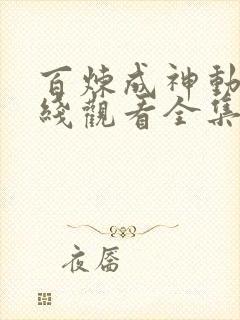 百煉成神動
綫觀看全集
夜唇